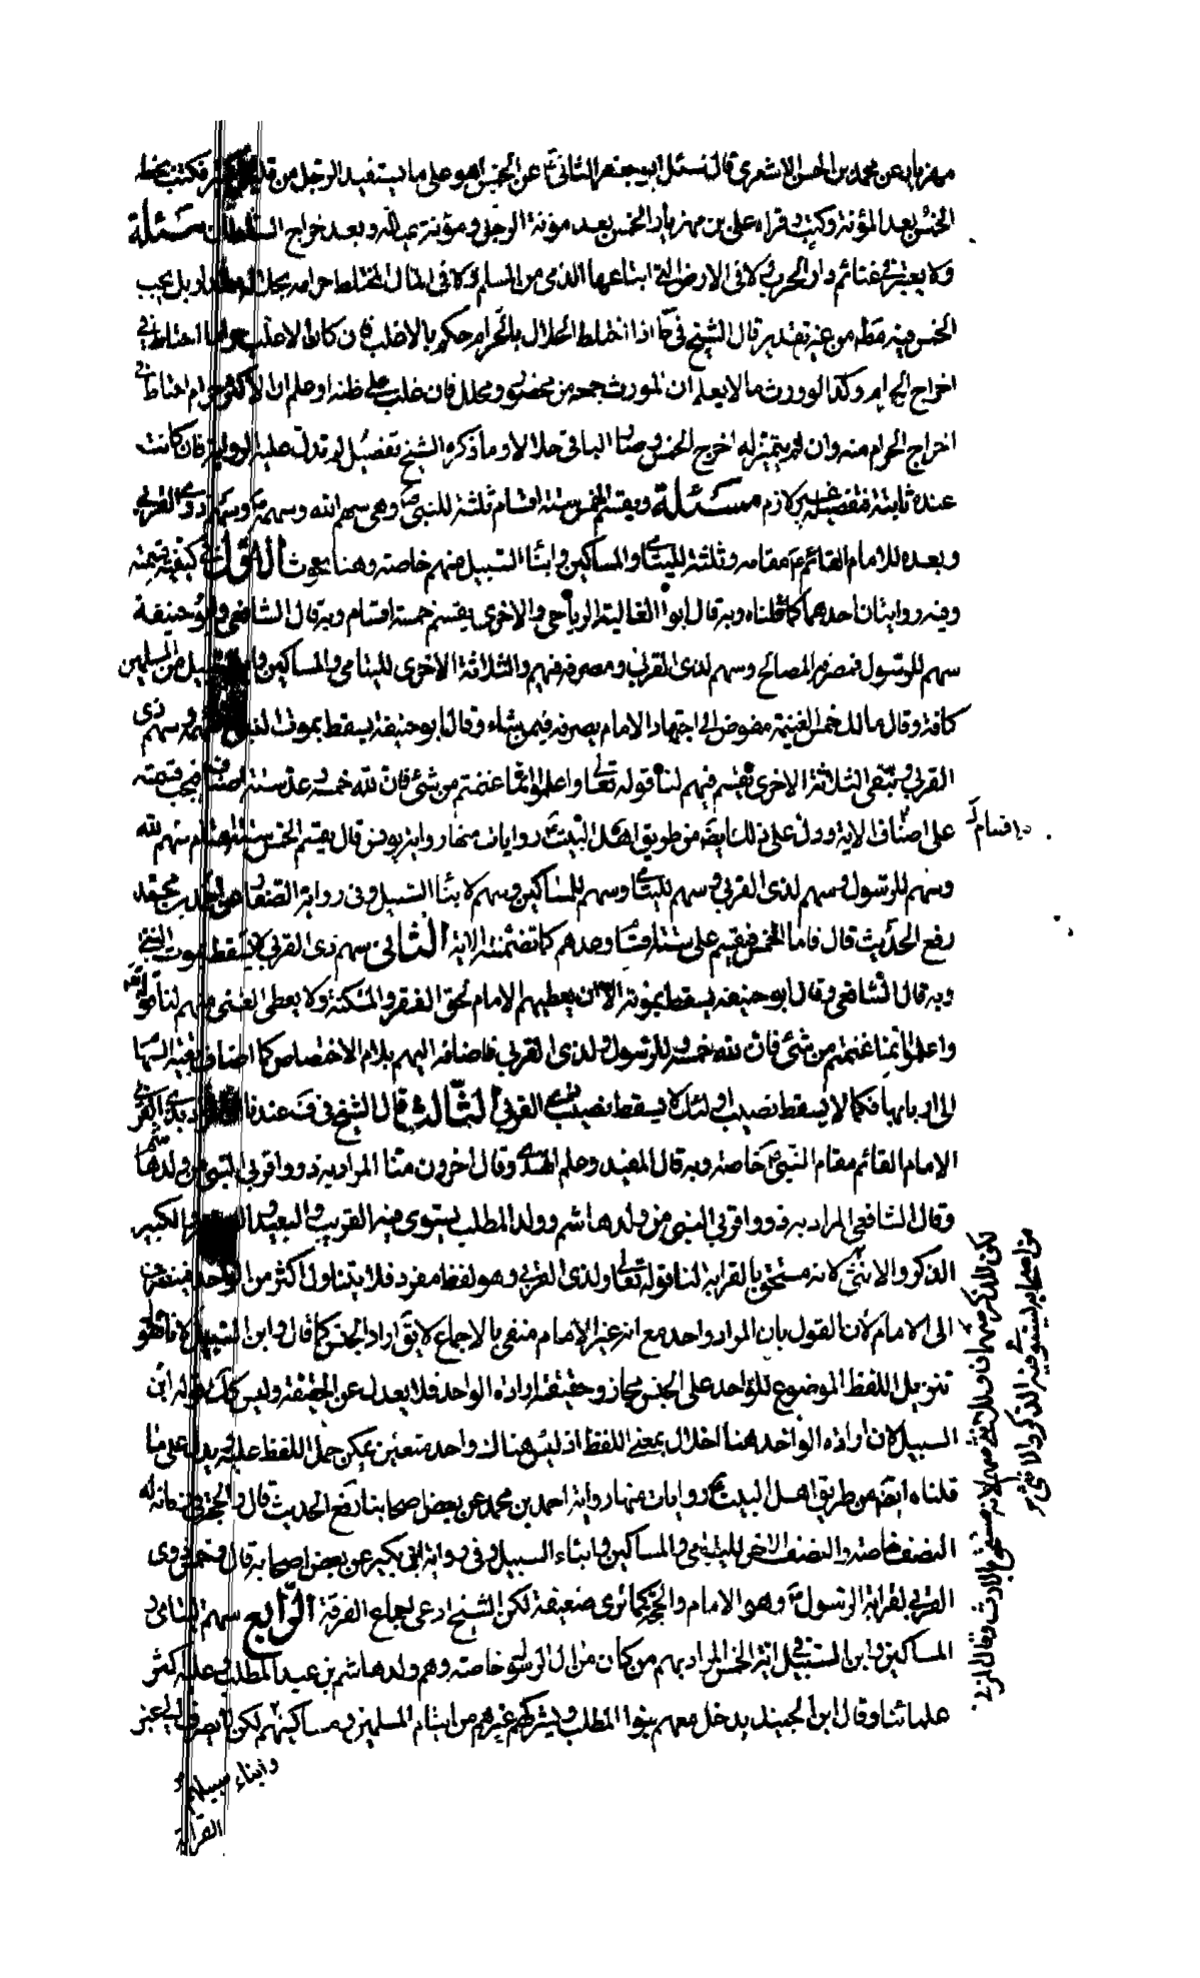 مهزيار عن محمد بن الحسن الاشعري قال سئل ابو جعفر الثانيؑ عن الخمس اهو على ما يستفيد الرجل من قليل وكثير فكتب بخطه
الخمس بعد المؤنة وكتب وقراه على بن مهزيار الخمس بعد مؤنة الرجل ومؤنة عياله وبعد خراج السلطان مسئلة
ولا يعتبر في غنائم دار الحرب ولا في الارض التي ابتاعها الذمي من المسلم ولا في المال المختلط حرامه بحلاله مقدار بل يجب
الخمس فيه مطلقا من غير تقدير قال الشيخ في اذا اختلط الحلال بالحرام حكم بالاغلب فان كان الاغلب حراما احتاط في
اخراج الحرام وكذا لو ورث مالا يعلم ان المورث جمعه من محظور ومحلل فان غلب على ظنه او علم ان الاكثر حرام احتاط في
اخراج الحرام منه وان لم يتميز له اخرج الخمس وصار الباقي حلالا وما ذكره الشيخ تفصيل لم تدل عليه الرواية فان كانت
عنده ثابتة فتفصيله غير لازم مسئلة ويقسم الخمس ستة اقسام ثلثة للنبيؐ وهي سهم الله وسهمه وسهم ذي القربى
وبعده للامام القائم مقامه وثلثة لليتامى والمساكين وابناء السبيل منهم خاصة وهنا بحوث الاول في كيفية قسمته
وفيه روايتان احدهما كما قلناه وبه قال ابو العالية الرياحي والاخرى يقسم خمسة اقسام وبه قال الشافعي وابو حنيفة
سهم للرسول فمصرفه المصالح وسهم لذي القربى ومصرفه فيهم والثلاثة الاخرى لليتامى والمساكين وابن السبيل من المسلمين
كافة وقال مالك خمس الغنيمة مفوض الى اجتهاد الامام يصرفه فيمن شاء وقال ابو حنيفة يسقط بموت النبي سهمه وسهم ذي
القربى وتبقى الثلاثة الاخرى تقسم فيهم لنا قوله تعالى واعلموا انما غنمتم من شئ فان لله خمسه وعد ستة اصناف فيجب قسمته
على اصناف الاية ودل على ذلك ايضا من طريق اهل البيتؑ روايات منها رواية يونس قال يقسم الخمس ستة اقسام سهم لله
وسهم للرسول وسهم لذي القربى وسهم لليتامى وسهم للمساكين وسهم لابناء السبيل وفي رواية احمد بن محمد
رفع الحديث قال فاما الخمس فيقسم على ستة وعدهم كما تضمنته الاية الثاني سهم ذي القربى لا يسقط بموت النبي
وبه قال الشافعي وقال ابو حنيفة يسقط بموته الا ان يعطيهم الامام لحق الفقر والمسكنة ولا يعطى الغنى منهم لنا قوله تعالى
واعلموا انما غنمتم من شئ فان لله خمسه وللرسول ولذي القربى فاضافه اليهم بلام الاختصاص كما اضاف بقية السهام
الى اربابها فكما لا يسقط نصيب اولئك لا يسقط نصيب ذي القربى الثالث قال الشيخ في عندنا المراد بذي القربى
الامام القائم مقام النبيؐ خاصة وبه قال المفيد وعلم الهدى وقال اخرون منا المراد به ذوو اقربى النبي من ولد هاشم
وقال الشافعي المراد به ذوو اقربى النبي من ولد هاشم وولد المطلب يستوى فيه القريب والبعيد والصغير والكبير
الذكر والانثى لانه مستحق بالقرابة لنا قوله تعالى ولذي القربى وهو لفظ مفرد فلا يتناول اكثر من الواحد فينصرف
الى الامام لان القول بان المراد واحد مع انه غير الامام منفى بالاجماع لا يق اراد الجنس كما قال وابن السبيل لانا نقول
تنزيل اللفظ الموضوع للواحد على الجنس مجاز وحقيقته ارادة الواحد فلا يعدل عن الحقيقة وليس كذلك قوله ابن
السبيل لان ارادة الواحد هنا اخلال بمعنى اللفظ اذ ليس هناك واحد متعين يمكن حمل اللفظ عليه ويدل على ما
قلناه ايضا من طريق اهل البيتؑ روايات منها رواية احمد بن محمد عن بعض اصحابنا رفع الحديث قال والحجة في زمانه له
النصف خاصة والنصف الاخر لليتامى والمساكين وابناء السبيل وفي رواية ابن بكير عن بعض اصحابه قال وخمس ذوى
القربى لقرابة الرسولؐ وهو الامام والحجة كما ترى ضعيفة لكن الشيخ ادعى اجماع الفرقة الرابع سهم اليتامى و
المساكين وابن السبيل في اية الخمس المراد بهم من كان من ال الرسول خاصة وهم ولد هاشم بن عبد المطلب وعليه اكثر
علمائنا وقال ابن الجنيد يدخل معهم بنو المطلب ويشركهم غيرهم من ايتام المسلمين ومساكينهم لكن لا يصرف الى غير
وابناء سبيلهم
القرابة
اقسام
لكن للذكر سهمان وللانثى سهم لانه مستحق بالارث وقال المزني
من اصحابه يستوى فيه الذكر والانثى